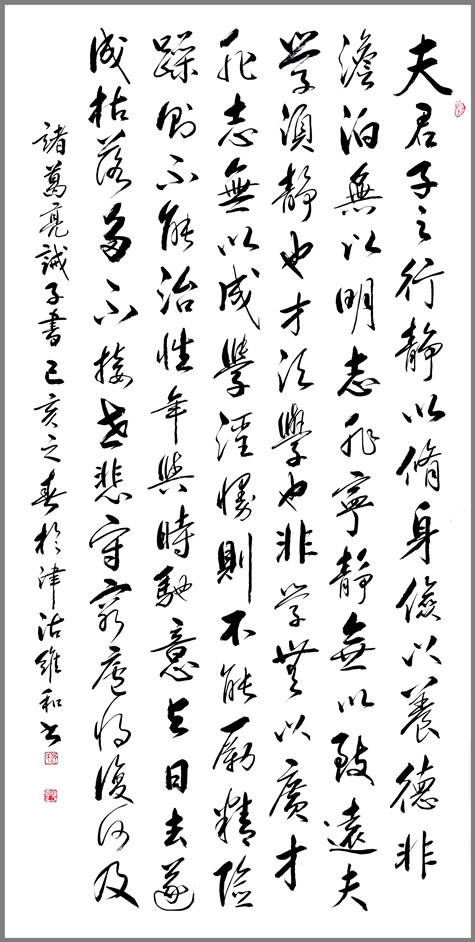 夫君子之行靜以脩身儉以養德非
澹泊無以明志非寧靜無以致遠夫
學須靜也才須學也非学無以廣才
非志無以成學淫慢則不能勵精險
躁則不能治性年與時馳意与日去遂
成枯落多不接世悲守窮廬將復何及
諸葛亮誡子書己亥之春於津沽維和书